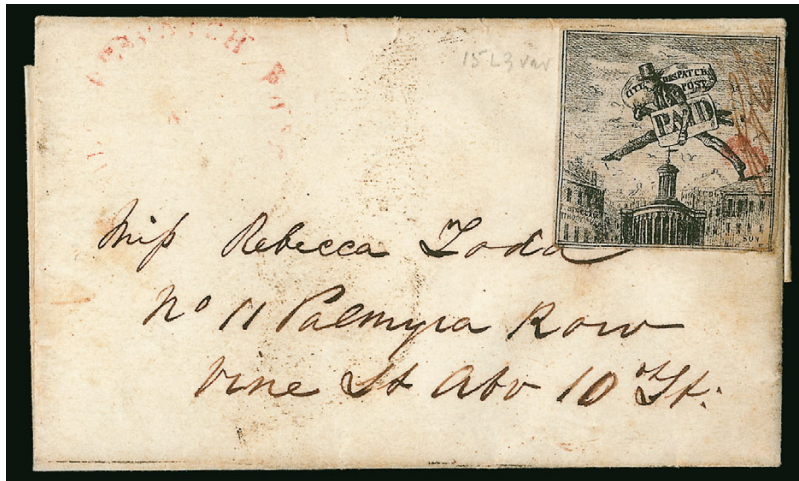 DESPATCH POST
15L3 var
CITY DESPATCH
POST
PAID
Miss Rebecca Todd
No 11 Palmyra Row
Vine St Abv 10 St.